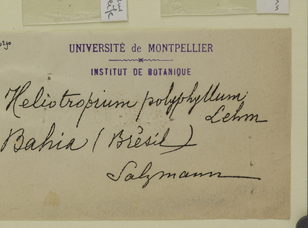 UNIVERSITÉ de MONTPELLIER
INSTITUT DE BOTANIQUE
Heliotropium polyphyllum
Lehm
Bahia (Brésil)
Salzmann